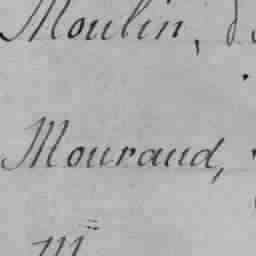 Moulin,
Mouraud,